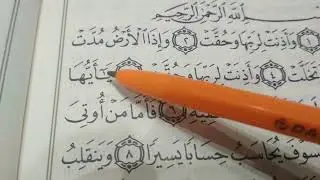 ٱللَّهِ ٱلرَّحْمَٰنِ ٱلرَّحِيمِ
١ وَأَذِنَتْ لِرَبِّهَا وَحُقَّتْ ٢ وَإِذَا ٱلْأَرْضُ مُدَّتْ
تَخَلَّتْ ٤ وَأَذِنَتْ لِرَبِّهَا وَحُقَّتْ يَٰٓأَيُّهَا
فَأَمَّا مَنْ أُوتِىَ
سَوْفَ يُحَاسَبُ حِسَابًا يَسِيرًا ٨ وَيَنقَلِبُ